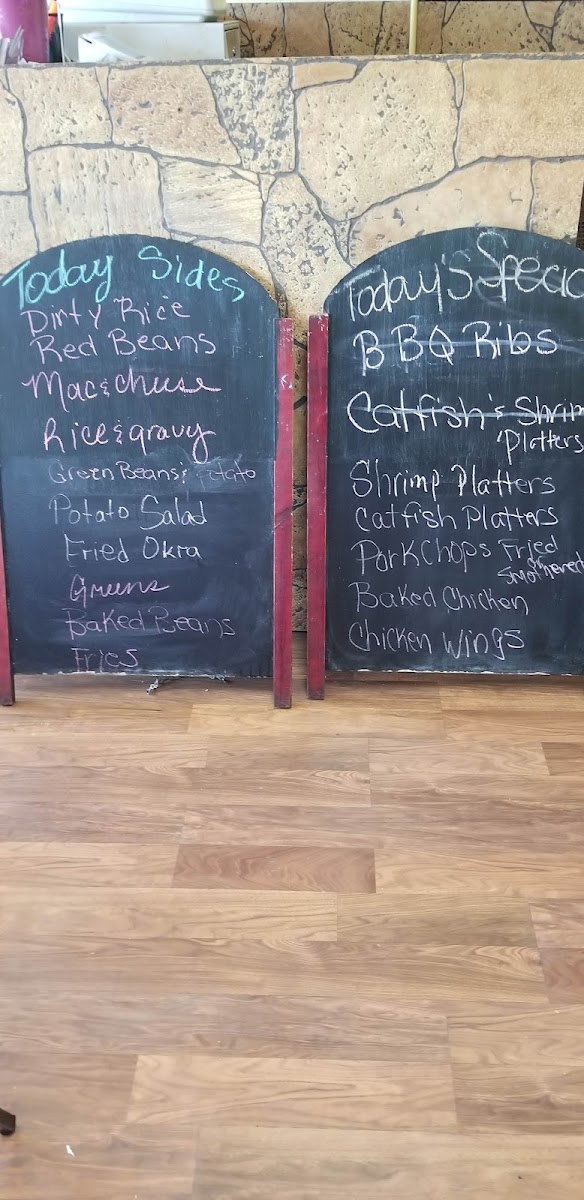 Today Sides
Dirty Rice
Red Beans
Mac & Cheese
Rice & gravy
Green Beans & Potato
Potato Salad
Fried Okra
Greens
Baked Beans
Fries
Today's Specia
BBQ Ribs
Catfish & Shrim
Platters
Shrimp Platters
Catfish Platters
Pork Chops Fried
or
Smothered
Baked Chicken
Chicken Wings